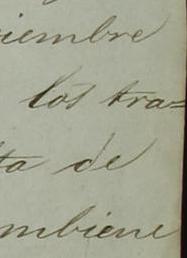 iembre
los tra=
ta de
mbiene